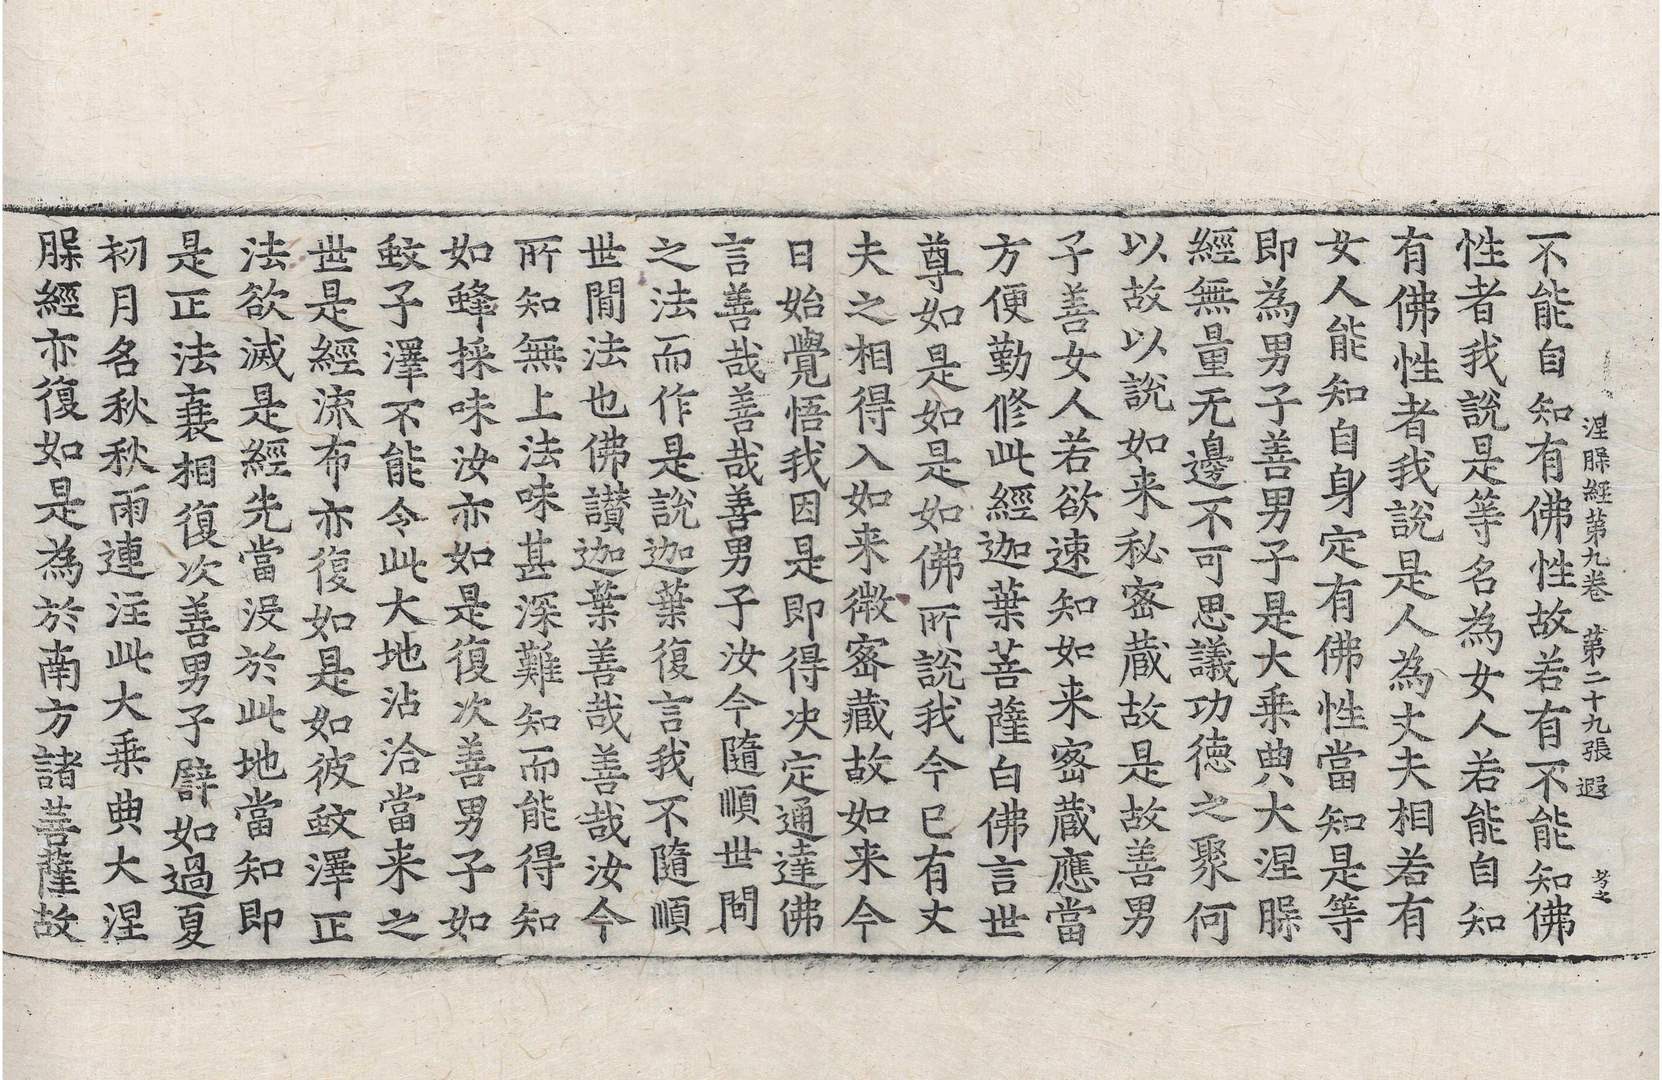 涅槃經第九卷 第二十九張 遐 孝之
不能自知有佛性故若有不能知佛
性者我說是等名為女人若能自知
有佛性者我說是人為丈夫相若有
女人能知自身定有佛性當知是等
即為男子善男子是大乘典大涅槃
經無量无邊不可思議功德之聚何
以故以說如来秘密蔵故是故善男
子善女人若欲速知如来密蔵應當
方便勤修此經迦葉菩薩白佛言世
尊如是如是如佛所說我今已有丈
夫之相得入如来微密藏故如来今
日始覺悟我因是即得决定通達佛
言善哉善哉善男子汝今隨順世間
之法而作是說迦葉復言我不隨順
世間法也佛讃迦葉善哉善哉汝今
所知無上法味甚深難知而能得知
如蜂採味汝亦如是復次善男子如
蚊子澤不能令此大地沾洽當来之
世是經流布亦復如是如彼蚊澤正
法欲滅是經先當没於此地當知即
是正法衰相復次善男子譬如過夏
初月名秋秋雨連注此大乘典大涅
槃經亦復如是為於南方諸菩薩故